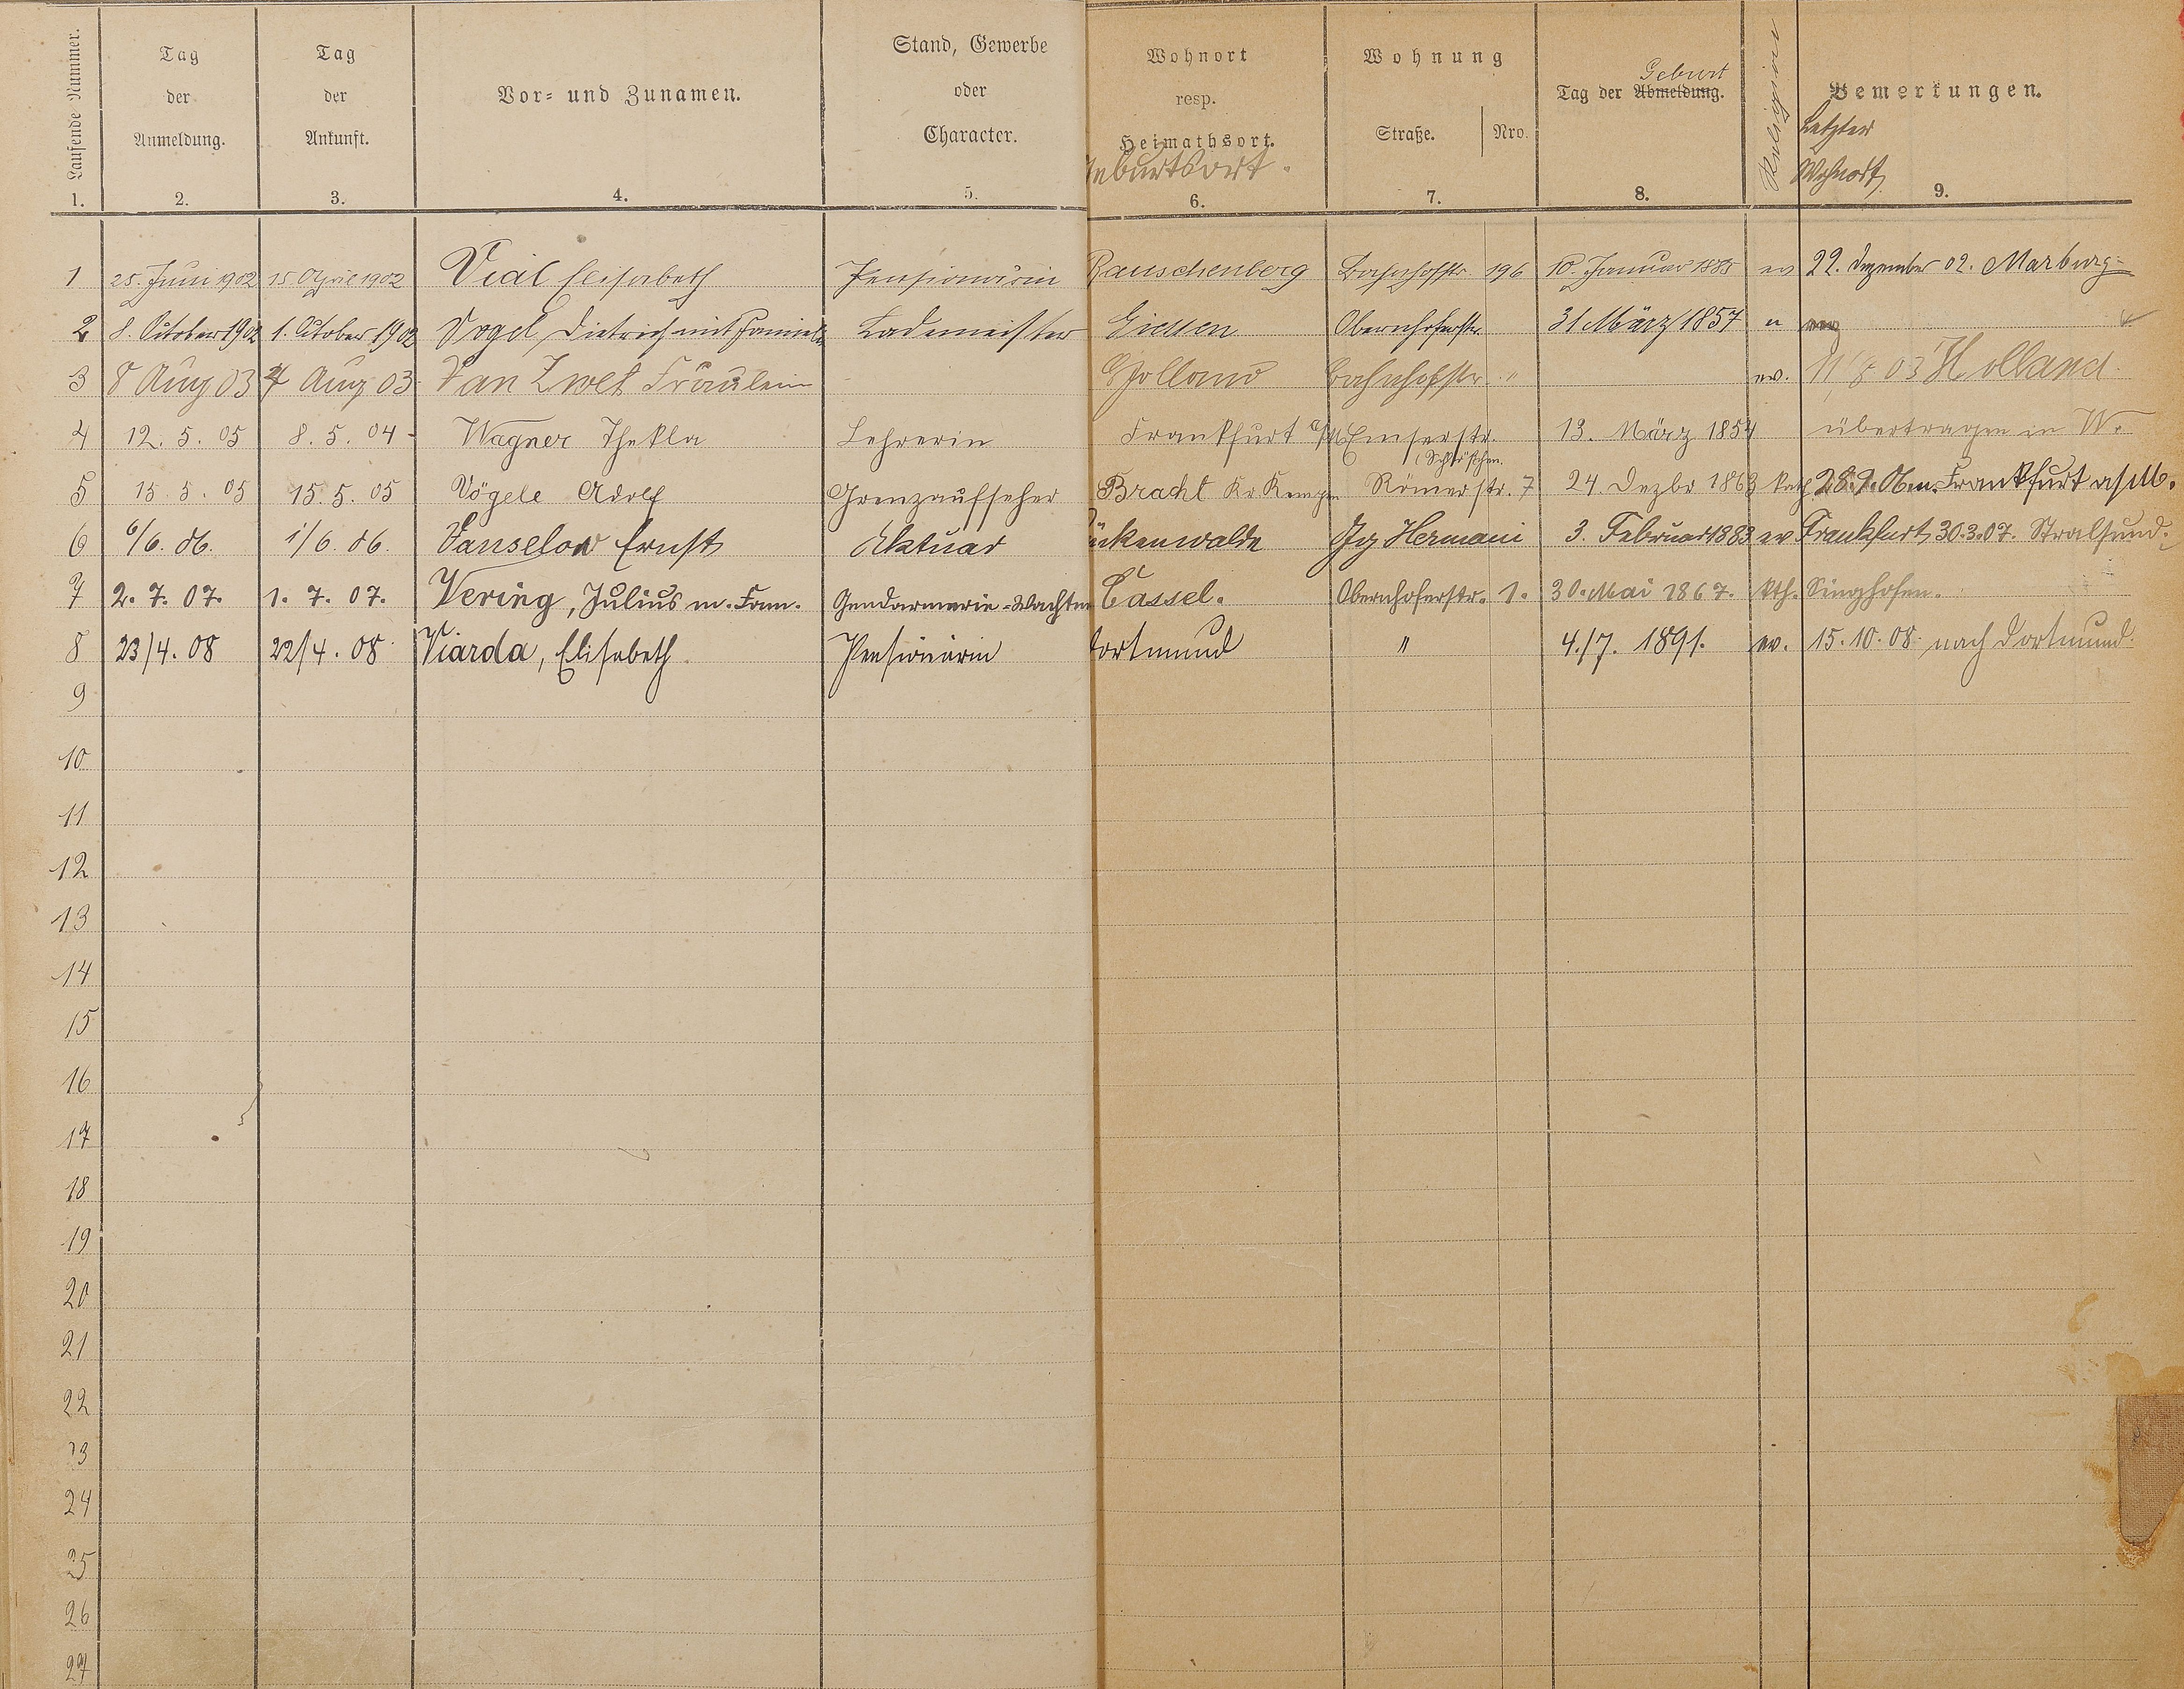 Laufende Nummer.
Tag der Anmeldung.
Tag der Ankunft.
Vor- und Zunamen.
Stand, Gewerbe oder Character.
Wohnort resp. Heimathsort.
Geburtsort.
Wohnung
Straße. Nro.
Geburt
Tag der Abmeldung.
Religion
Bemerkungen.
Letzter
Wohnort
1. 2. 3. 4. 5. 6. 7. 8. 9.
1 25. Juni 1902 15 April 1902 Vial Elisabeth Pensionärin Rauschenberg Bahnhofstr. 196 10. Januar 1885 ev 22. Dezember 02. Marburg
2 8. October 1902 1. October 1902 Vogel, Dietrich mit Familie Lademeister Giessen Obernhoferstr. 31 März 1857 "
3 8 Aug 03 4 Aug 03 Van Zwet Fräulein Holland Bahnhofstr. " ev. 11/8 03 Holland.
4 12. 5. 05 8. 5. 04 Wagner Thekla Lehrerin Frankfurt a/M Emserstr. 13. März 1854 übertragen in W.
(Schlößchen.
5 15. 5. 05 15. 5. 05 Vögele Adolf Grenzaufseher Bracht Kr. Kempen Römerstr. 7 24. Dezbr 1863 kath 28.9.06 n. Frankfurt a/M.
6 6/6. 06. 1/6. 06. Vanselow Ernst Aktuar ückenwalde Hermani 3. Februar 1883 ev Frankfurt 30.3.07. Stralsund.
7 2. 7. 07. 1. 7. 07. Vering, Julius m. Fam. Gendarmerie-Wachtm Cassel. Obernhoferstr. 1. 30. Mai 1867. kth. Singhofen.
8 23/4. 08 22/4. 08 Viarda, Elisabeth. Pensionärin Dortmund " 4./7. 1891. ev. 15.10.08. nach Dortmund.
9
10
11
12
13
14
15
16
17
18
19
20
21
22
23
24
25
26
27